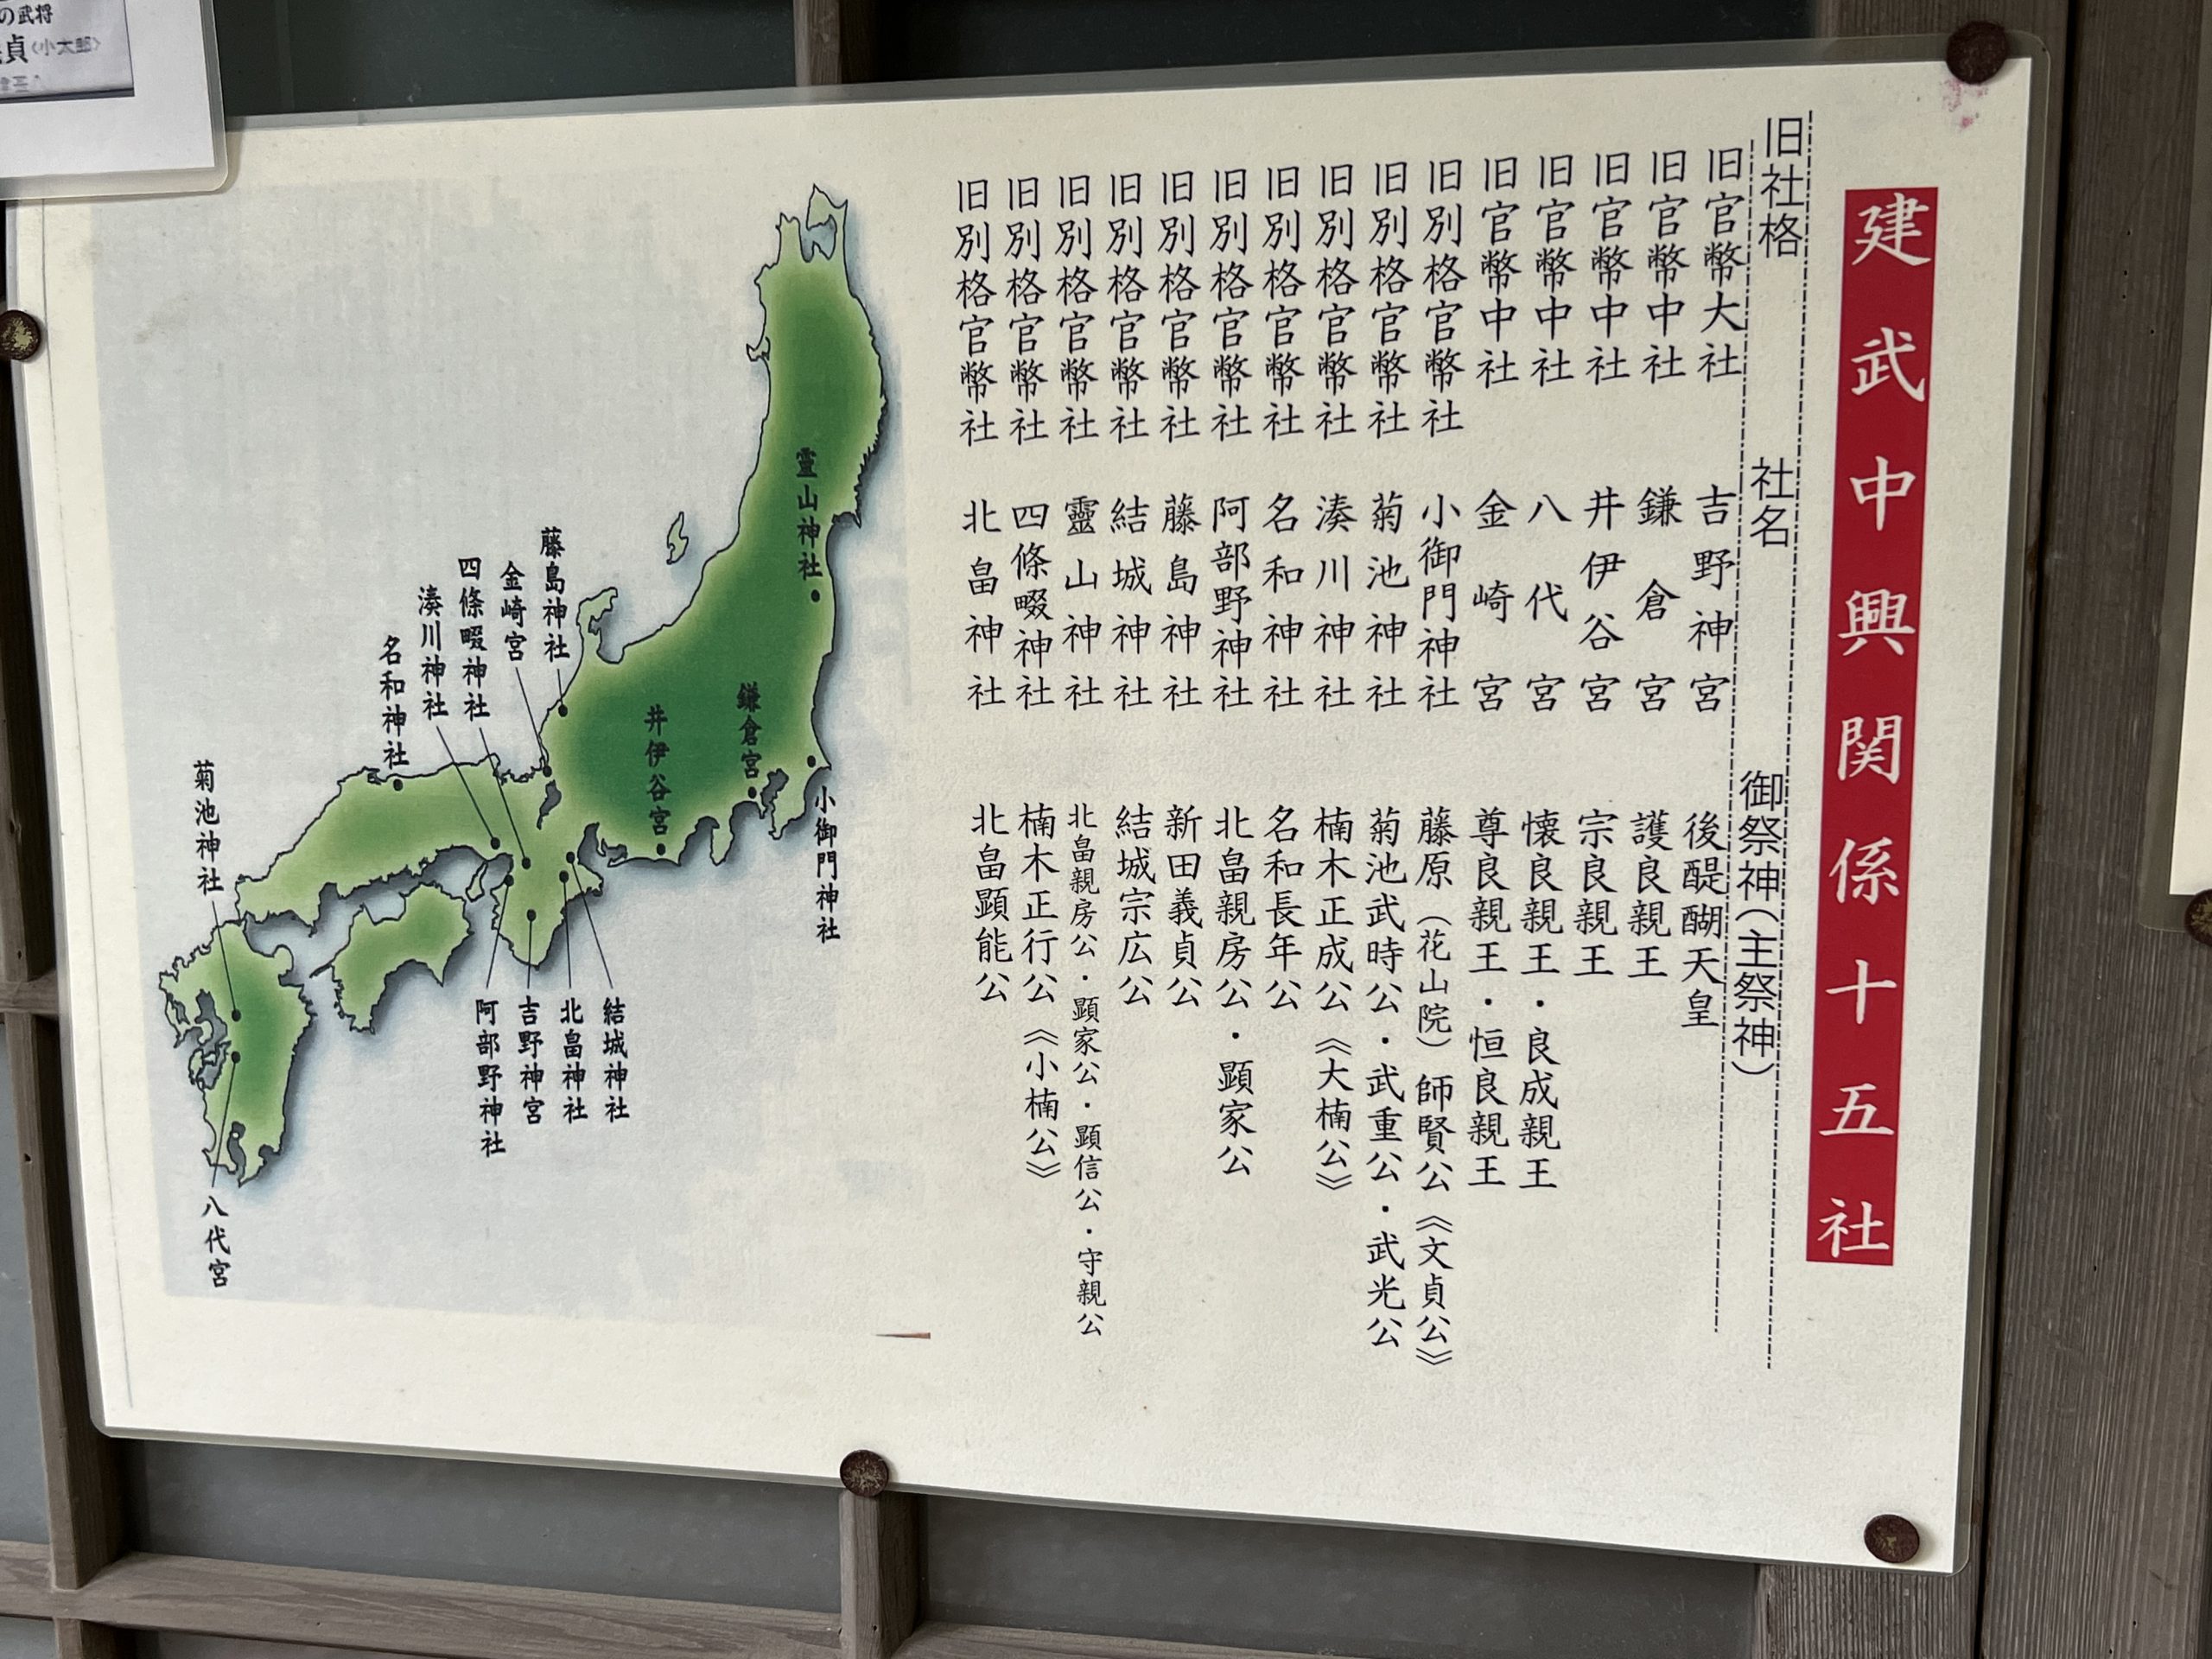 建武中興関係十五社
旧社格 社名 御祭神（主祭神）
旧官幣大社 吉野神宮 後醍醐天皇
旧官幣中社 鎌倉宮 護良親王
旧官幣中社 井伊谷宮 宗良親王
旧官幣中社 八代宮 懐良親王・良成親王
旧官幣中社 金崎宮 尊良親王・恒良親王
旧別格官幣社 小御門神社 藤原（花山院）師賢公《文貞公》
旧別格官幣社 菊池神社 菊池武時公・武重公・武光公
旧別格官幣社 湊川神社 楠木正成公《大楠公》
旧別格官幣社 名和神社 名和長年公
旧別格官幣社 阿部野神社 北畠親房公・顕家公
旧別格官幣社 藤島神社 新田義貞公
旧別格官幣社 結城神社 結城宗広公
旧別格官幣社 靈山神社 北畠親房公・顕家公・顕信公・守親公
旧別格官幣社 四條畷神社 楠木正行公《小楠公》
旧別格官幣社 北畠神社 北畠顕能公
靈山神社
小御門神社
鎌倉宮
井伊谷宮
藤島神社
金崎宮
四條畷神社
湊川神社
名和神社
菊池神社
結城神社
北畠神社
吉野神宮
阿部野神社
八代宮
の武将
貞〈小太郎〉